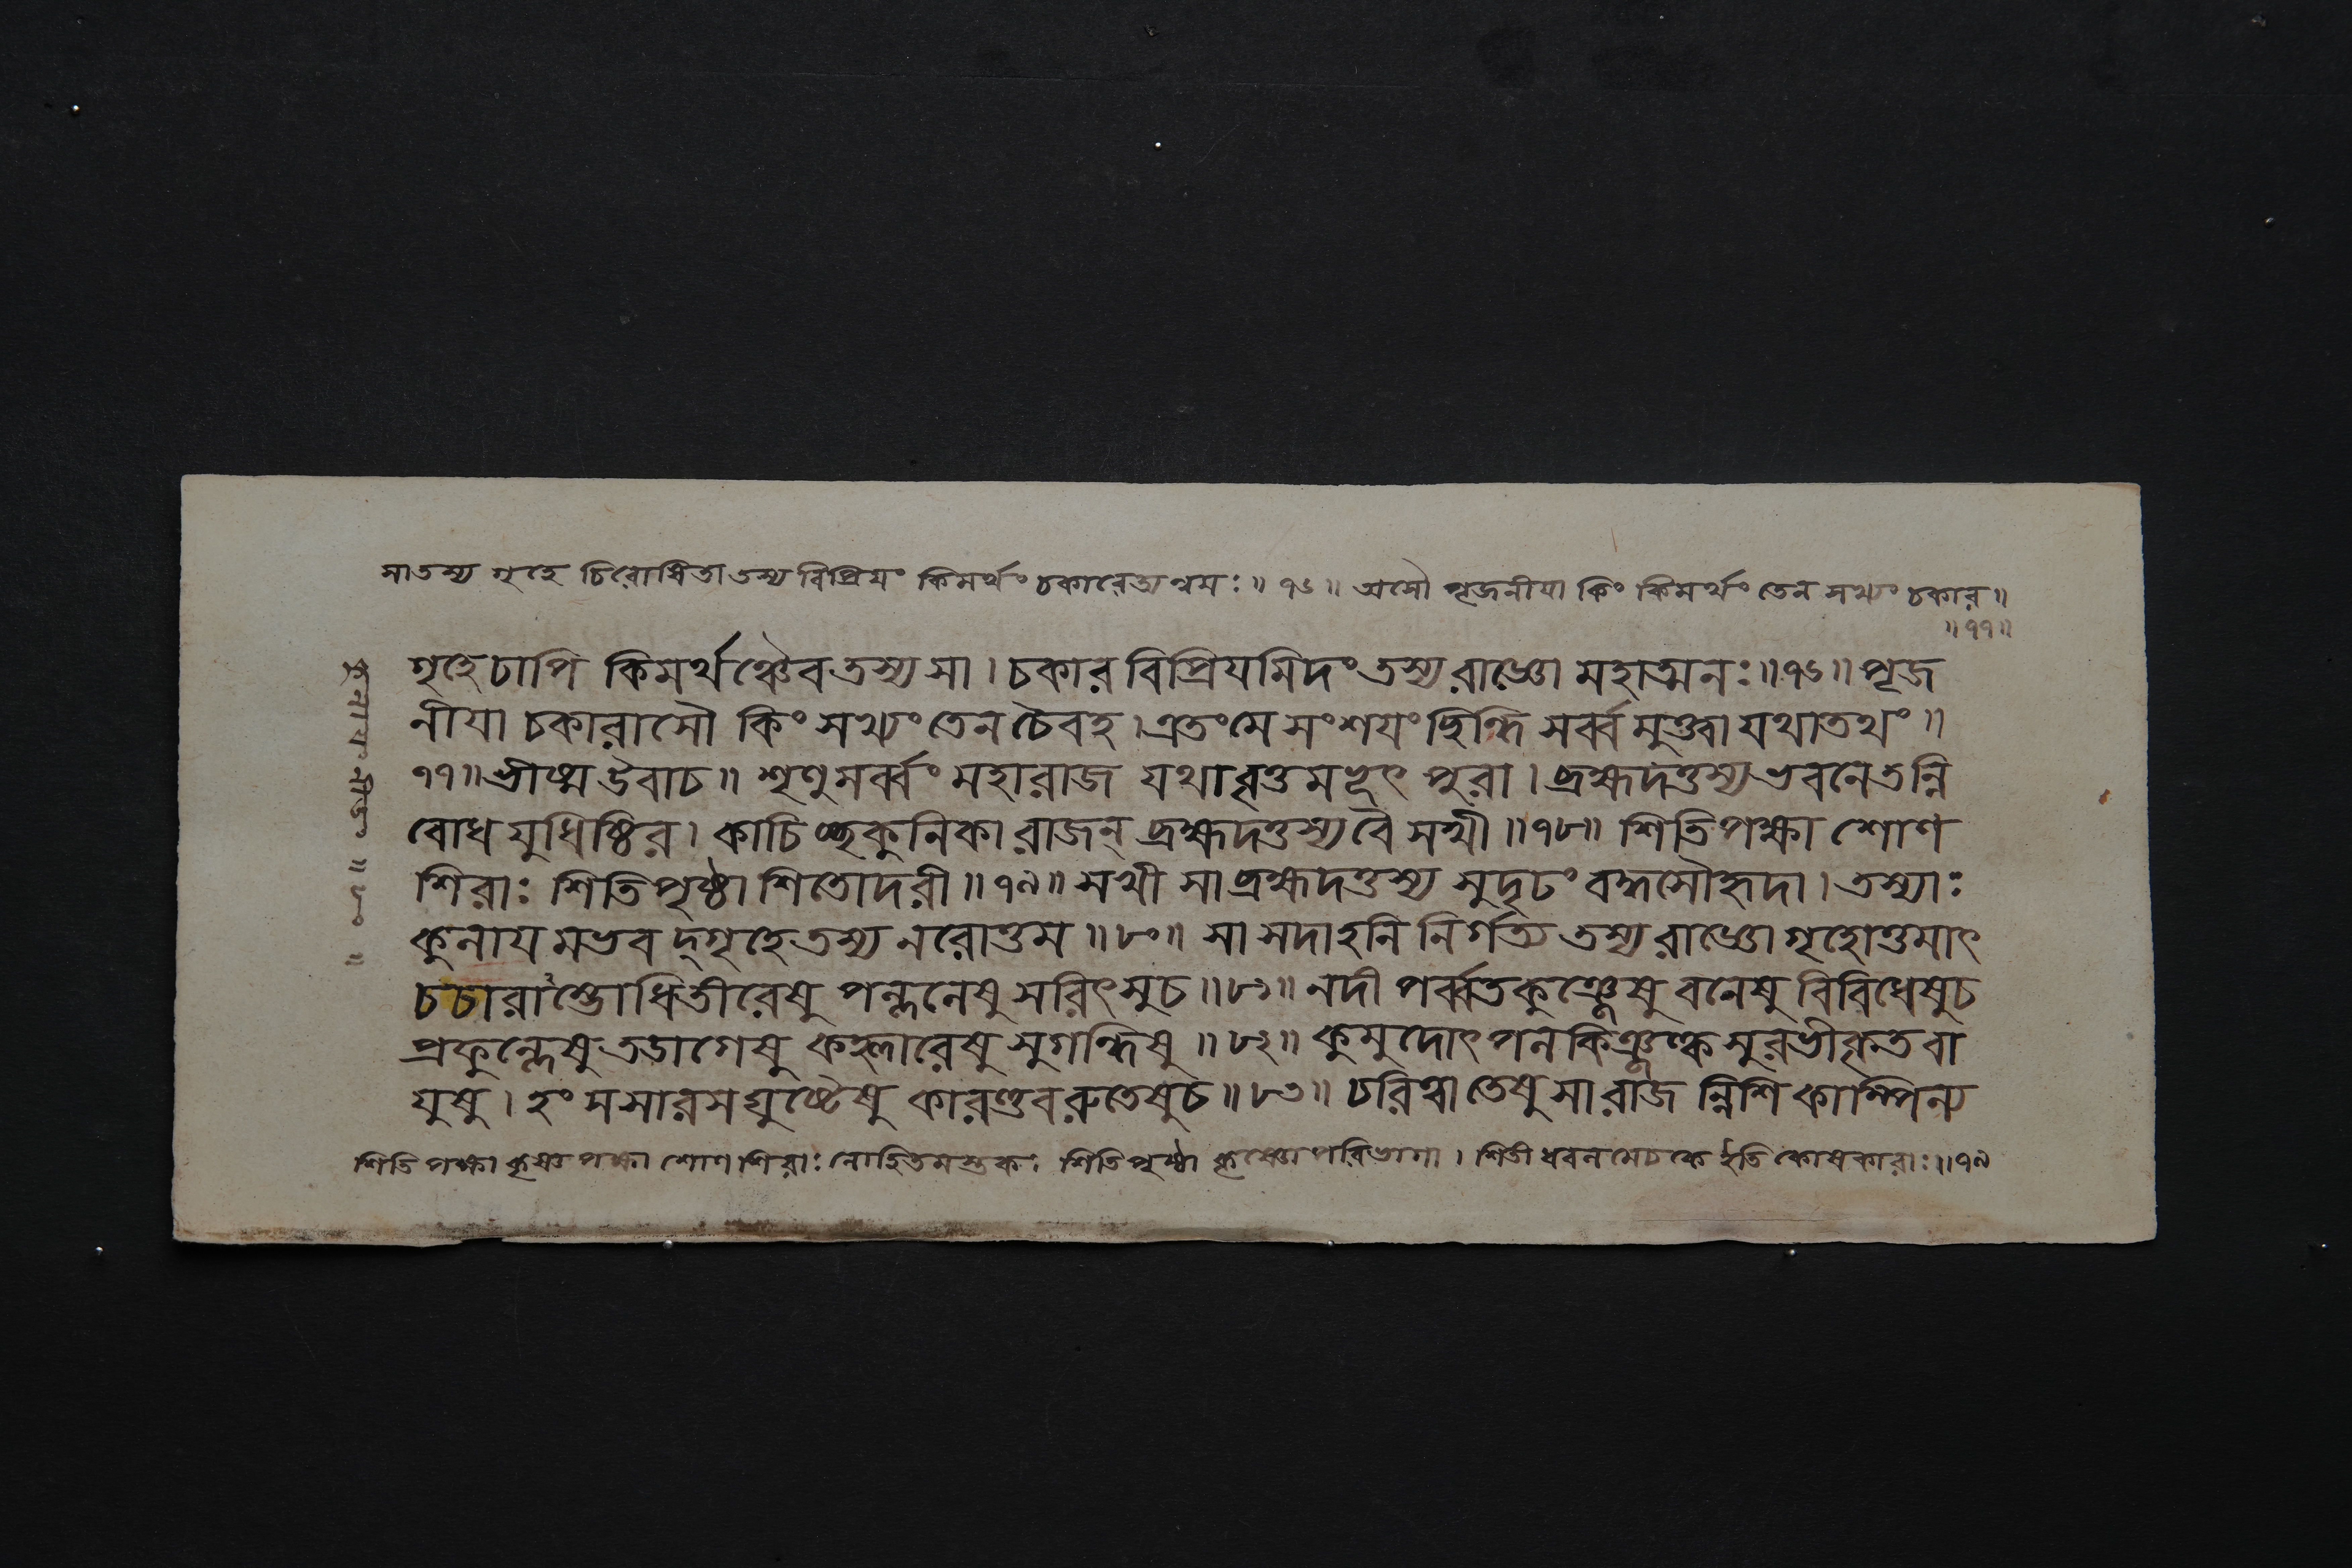 সাতস্য গৃহে চিরোষিতা তস্য বিপ্রিয়ং কিমর্থং চকারেত্যন্বয়ঃ ॥ ৭৬ ॥ অসৌ পূজনীয়া কিং কিমর্থং তেন সখ্যং চকার ॥
॥ ৭৭ ॥
গৃহে চাপি কিমর্থঞ্চৈব তস্য সা । চকার বিপ্রিয়মিদং তস্য রাজ্ঞো মহাত্মনঃ ॥ ৭৬ ॥ পূজ
নীয়া চকারাসৌ কিং সখ্যং তেন চৈবহ । এতংমে সংশয়ং ছিন্ধি সর্ব্বমুক্ত্বা যথাতথং ॥
৭৭ ॥ ভীষ্ম উবাচ ॥ শৃণু সর্ব্বং মহারাজ যথাবৃত্তমভূৎ পুরা । ব্রহ্মদত্তস্য ভবনে তন্নি
বোধ যুধিষ্ঠির । কাচিচ্ছকুনিকা রাজন্ ব্রহ্মদত্তস্য বৈ সখী ॥ ৭৮ ॥ শিতিপক্ষা শোণ
শিরাঃ শিতিপৃষ্ঠা শিতোদরী ॥ ৭৯ ॥ সখী সা ব্রহ্মদত্তস্য সুদৃঢং বদ্ধসৌহৃদা । তস্যাঃ
কুলায়মভবদ্গৃহে তস্য নরোত্তম ॥ ৮০ ॥ সা সদাহনি নির্গত্য তস্য রাজ্ঞো গৃহোত্তমাৎ
চচারাম্ভোধিতীরেষু পল্বলেষু সরিৎসুচ ॥ ৮১ ॥ নদী পর্ব্বতকুঞ্জেষু বনেষু বিবিধেষুচ
প্রফুল্লেষু তডাগেষু কহ্লারেষু সুগন্ধিষু ॥ ৮২ ॥ কুমুদোৎপলকিঞ্জল্কসুরভীকৃতবা
যুষু । হংসসারসঘুষ্টেষু কারণ্ডবরুতেষুচ ॥ ৮৩ ॥ চরিত্বা তেষু সা রাজন্নিশি কাম্পিল্য
শিতি পক্ষা কৃষ্ণপক্ষা শোণশিরাঃ লোহিতমস্তকা শিতিপৃষ্ঠা কৃষ্ণোপরিভাগা । শিতী ধবলমেচকে ইতি কোষকারাঃ ॥ ৭৯
কুলায়ং নীডং ॥ ৮০ ॥